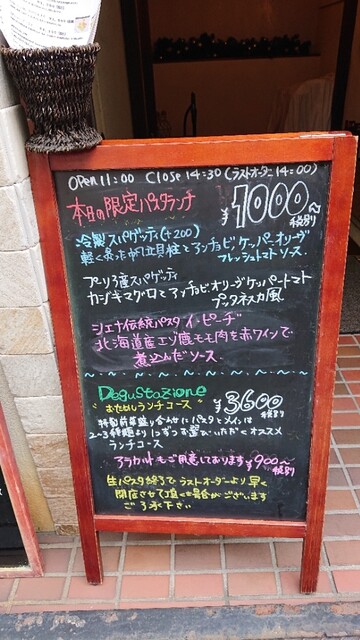 OPEN 11:00 CLOSE 14:30 (ラストオーダー 14:00)
本日の限定パスタランチ ¥1000～
税別
冷製スパゲッティ (+200)
軽く炙った帆立貝柱とアンチョビケッパーオリーヴ
フレッシュトマトソース.
プーリア産スパゲッティ
カジキマグロとアンチョビオリーヴケッパートマト
プッタネスカ風
シエナ伝統パスタ イ・ピーチ
北海道産エゾ鹿モモ肉を赤ワインで
煮込んだソース
Degustazione ¥3600
"おためしランチコース" 税別
特製前菜盛り合わせにパスタとメインは
2～3種類より1つずつお選びいただくオススメ
ランチコース
アラカルトもご用意しております ¥900～
税別
生パスタ終了でラストオーダーより早く
閉店させて頂く場合がございます
ご了承下さい